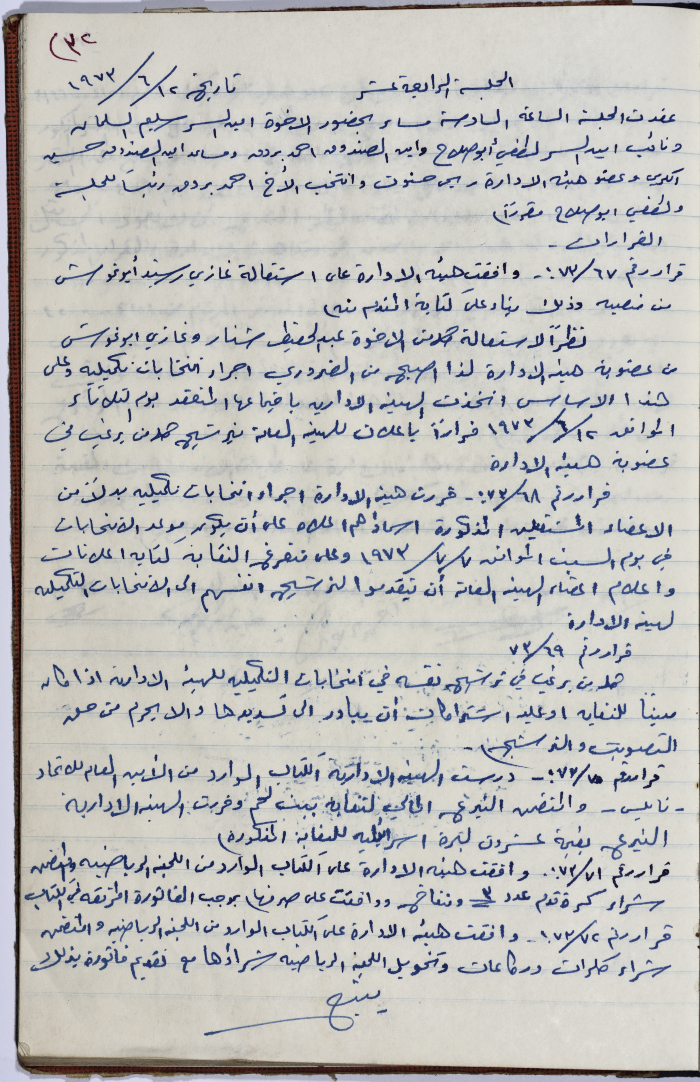 (٣٢
الجلسة الرابعة عشر تاريخ ١٢/٦/١٩٧٣
عقدت الجلسة الساعة السادسة مساء بحضور الاخوة امين السر سليم السلمان
ونائب امين السر لطفي أبو صلاح وامين الصندوق احمد بردوس ومساعد امين الصندوق حسين
وعضو هيئة الادارة ربحي وانتخب الأخ احمد بردوس رئيساً للجلسة
ولطفي ابو صلاح مقرراً)
القرارات -
قرار رقم ٧٣/٦٧:- وافقت هيئة الادارة على استقالة غازي رشيد أبو غوش
من منصبه وذلك بناء على كتابه المقدم منه)
نظراً لاستقالة كلا من الاخوة عبد الحفيظ شنار وغازي ابو غوش
من عضوية هيئة الادارة لذا اصبح من الضروري اجراء انتخابات تكميلية وعلى
هذا الاساس اتخذت الهيئة الادارية باجتماعها المنعقد يوم الثلاثاء
الموافق ١٢/٦/١٩٧٣ قراراً باعلان للهيئة العامة بترشيح كل من يرغب في
عضوية هيئة الادارة
قرار رقم ٧٣/٦٨:- قررت هيئة الادارة اجراء انتخابات تكميلية بدلاً من
الاعضاء المستقيلين المذكورة اسماؤهم اعلاه على أن يكون موعد الانتخابات
في يوم السبت الموافق ٧/٧/١٩٧٣ وعلى متفرغ النقابة كتابة اعلانات
واعلام اعضاء الهيئة العامة أن يتقدموا لترشيح انفسهم الى الانتخابات التكميلية
لهيئة الادارة
قرار رقم ٧٣/٦٩
كل من يرغب في ترشيح نفسه في انتخابات التكميلية للهيئة الادارية اذا كان
مديناً للنقابة او عليه اشتراكات أن يبادر الى تسديدها والا يحرم من حق
التصويت والترشيح) -
قرار رقم ٧٣/٧٠:- درست الهيئة الادارية الكتاب الوارد من الأمين العام للاتحاد
- نابلس - والمتضمن التبرع المالي لنقابة بيت لحم وقررت الهيئة الادارية
التبرع بقيمة عشرون ليرة اسرائيلية للنقابة المذكورة)
قرار رقم ٧٣/٧١:- وافقت هيئة الادارة على الكتاب الوارد من اللجنة الرياضية والمتضمن
شراء كرة قدم عدد ٣ ومنفاخ ووافقت على صرفها بموجب الفاتورة المرفقة في الكتاب
قرار رقم ٧٣/٧٢:- وافقت هيئة الادارة على الكتاب الوارد من اللجنة الرياضية والمتضمن
شراء كلسات وركاعات وتخويل اللجنة الرياضية شراؤها مع تقديم فاتورة بذلك
يتبع